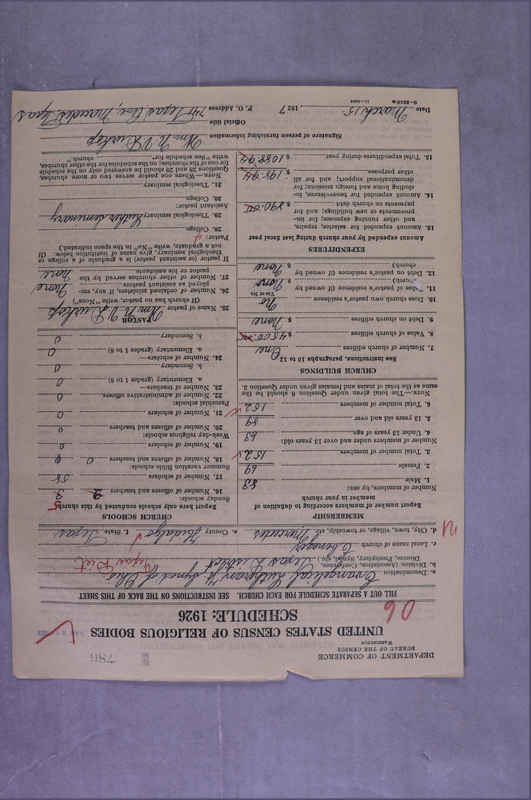 786
DEPARTMENT OF COMMERCE
BUREAU OF THE CENSUS
WASHINGTON
UNITED STATES CENSUS OF RELIGIOUS BODIES
SCHEDULE: 1926
06
FILL OUT A SEPARATE SCHEDULE FOR EACH CHURCH. SEE INSTRUCTIONS ON THE BACK OF THIS SHEET
a. Denomination Evangelical Lutheran Synod of Ohio
b. Division (Association, Conference, Diocese, Presbytery, Synod, etc.) Texas District Texas Dist.
c. Local name of church Ebenezer
d. City, town, village, or township, etc. Mercedes
e. County Hidalgo f. State Texas
MEMBERSHIP
Report number of members according to definition of member in your church
Number of members, by sex:
1. Male 83
2. Female 69
3. Total number of members 152
Number of members under and over 13 years old:
4. Under 13 years of age 63
5. 13 years old and over 89
6. Total number of members 152
NOTE.—The total given under Question 6 should be the same as the total of males and females given under Question 3.
CHURCH BUILDINGS
See instructions, paragraphs 10 to 12
7. Number of church edifices One
8. Value of church edifices $ 4500.00
9. Debt on church edifices $ None
10. Does church own pastor's residence No
Yes or No
11. Value of pastor's residence (if owned by church) $ None
12. Debt on pastor's residence (if owned by church) $ None
EXPENDITURES
Amount expended by your church during last fiscal year
13. Amount expended for salaries, repairs, and other running expenses; for improvements or new buildings; and for payments on church debt $
14. Amount expended for benevolences, including home and foreign missions; for denominational support; and for all other purposes $ 198.94
15. Total expenditures during year $ 1088.94
CHURCH SCHOOLS
Report here only schools conducted by this church
Sunday schools:
16. Number of officers and teachers
17. Number of scholars 58
Summer vacation Bible schools:
18. Number of officers and teachers 0
19. Number of scholars 0
Week-day religious schools:
20. Number of officers and teachers 0
21. Number of scholars 0
Parochial schools:
22. Number of administrative officers 0
23. Number of teachers—
a. Elementary (grades 1 to 8) 0
b. Secondary 0
24. Number of scholars—
a. Elementary (grades 1 to 8) 0
b. Secondary 0
PASTOR
25. Name of pastor
(If church has no pastor, write "None")
26. Number of ordained ministers, if any, employed as assistant pastors None
27. Number of other churches served by the pastor or his assistants None
If pastor (or assistant pastor) is a graduate of a college or theological seminary, give name of institution below. (If not a graduate, write "No" in the space indicated.)
Pastor:
28. College
29. Theological seminary Luther Seminary
Assistant pastor:
30. College
31. Theological seminary
NOTE.—Where one pastor serves two or more churches, Questions 25 and 28 should be answered only on the schedule for one of the churches; on the schedules for the other churches, write "See schedule for church."
Signature of person furnishing information
Official title
P. O. Address 747 Texas Ave, Mercedes Texas
Date March 15, 1927